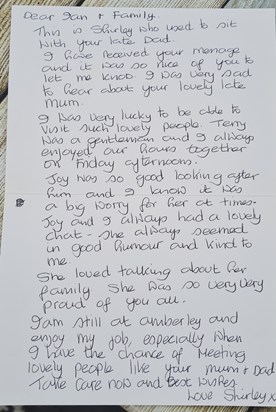 Dear Ian + Family.
This is Shirley who used to sit
with your late Dad.
I have received your message
and it was so nice of you to
let me know. I was very sad
to hear about your lovely late
mum.
I was very lucky to be able to
visit such lovely people. Terry
was a gentleman and I always
enjoyed our hours together
on Friday afternoons.
Joy was so good looking after
him and I know it was
a big worry for her at times.
Joy and I always had a lovely
chat - she always seemed
in good humour and kind to
me.
She loved talking about her
family she was so very very
proud of you all.
I am still at amberley and
enjoy my job, especially when
I have the chance of meeting
lovely people like your mum + Dad
Take care now and best wishes
Love Shirley x